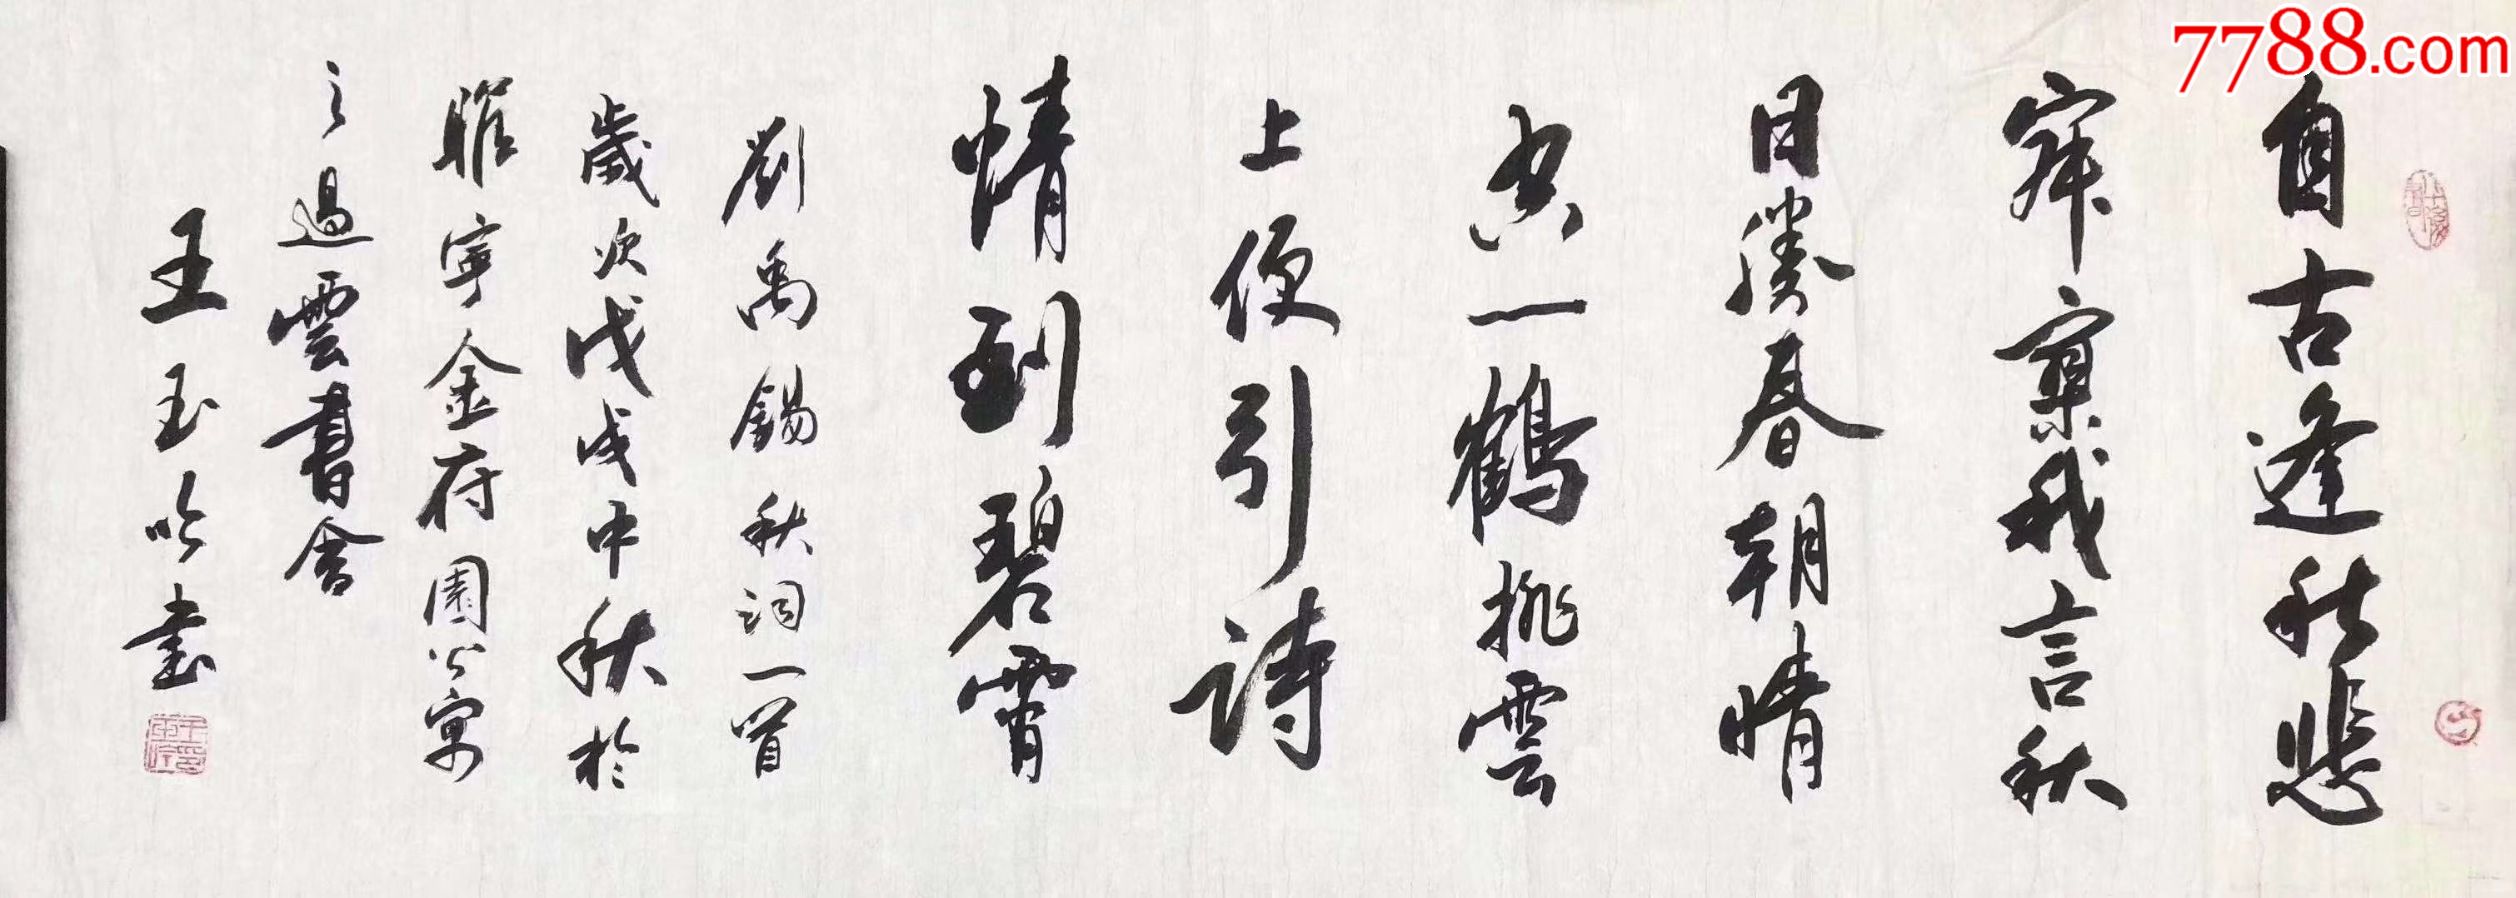 自古逢秋悲
寂寥我言秋
日勝春朝情
空一鶴排雲
上便引詩
情到碧霄
劉禹錫秋詞一首
歲次戊戌中秋於
睢寧金府園公寓
之過雲書舍
王玉吟書
7788.com